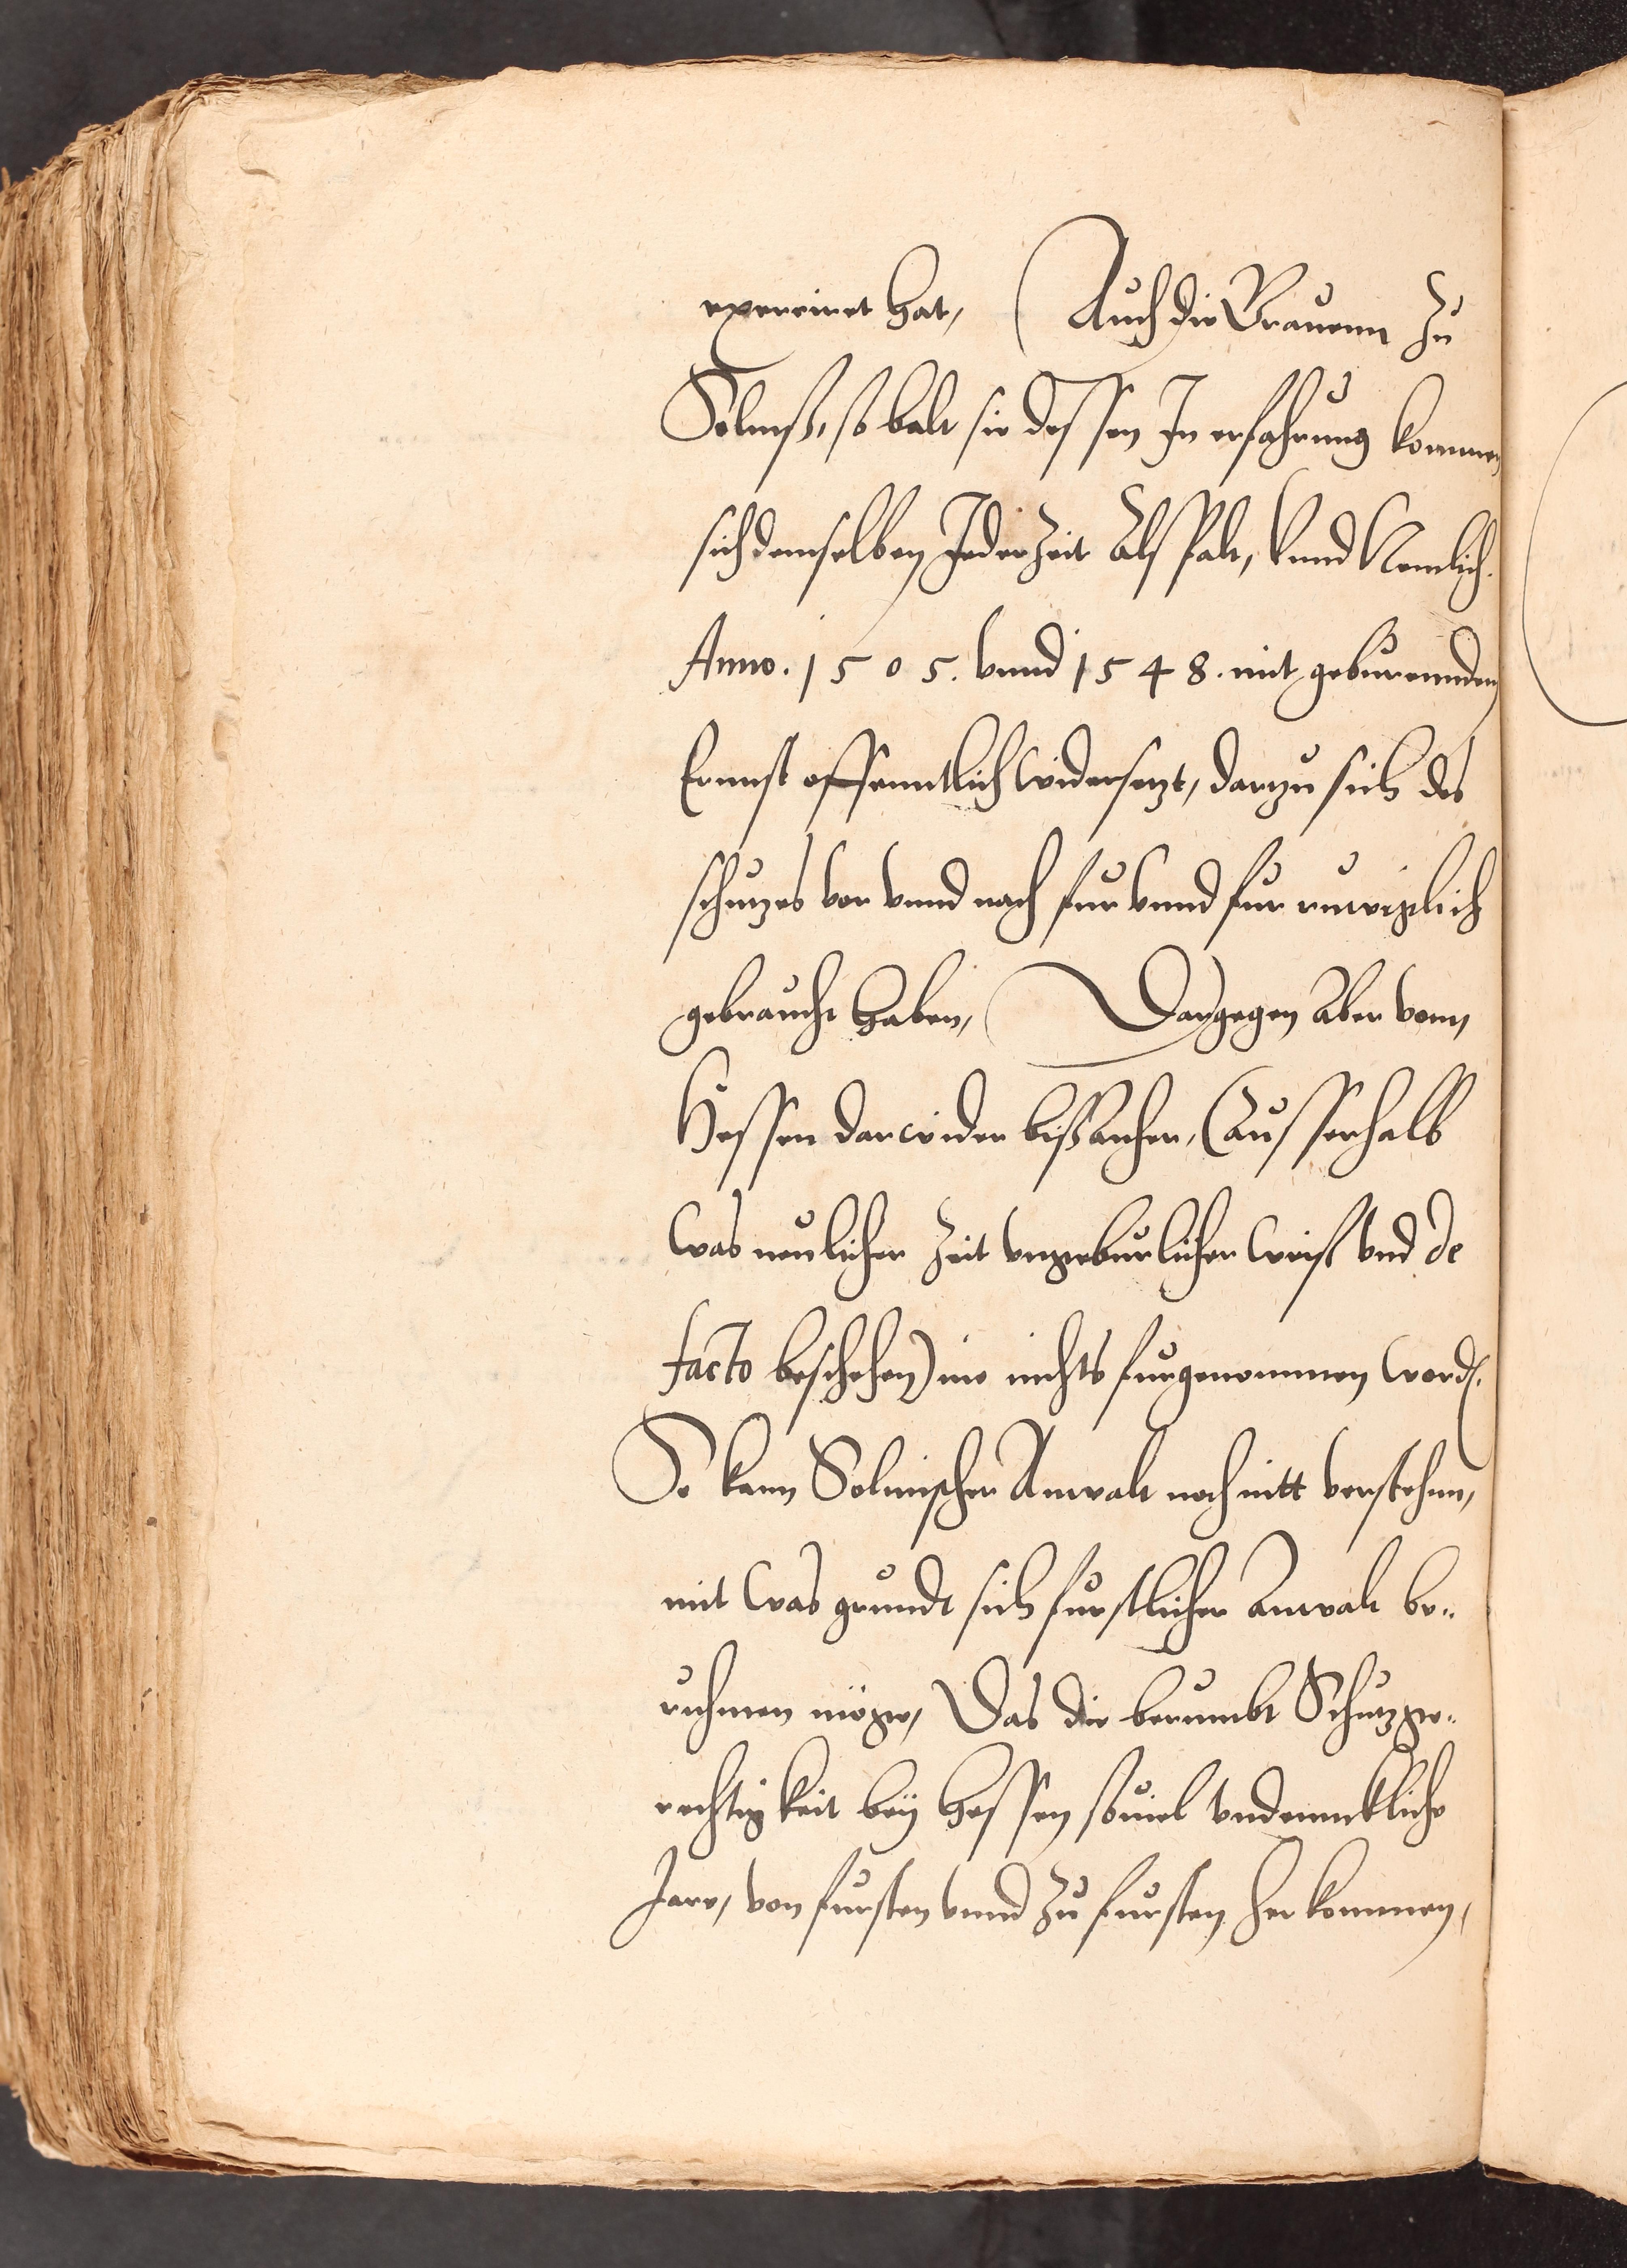 exerciret hat, Auch die Grauenn zu
Solmß, so balt sie dessen In erfahrung kommen
sich demselben Jederzeit Als balt, Vnnd Nemlich
Anno. 1505. vnnd 1548. mit geburennden
Ernnst offenntlich widersetzt, dartzu sich des
schutzes vor vnnd nach fur vnnd fur ruwiglich
gebraucht haben, Dargegen Aber vonn
Hessen darwider bißanher, (Ausserhalb
Was neulicher Zeit vngeburlicher weiß vnd de
facto beschehen) nie nichts furgenommen word.
So kann Solmischer Anwalt noch nitt verstehnn,
mit was grundt sich furstlicher Anwalt be¬
ruhmen möge, Das die berumbt Schutzge¬
rechtigkeit bey Hessen souiel vndennckliche
Jare, von fursten vnnd zu fursten her kommen,